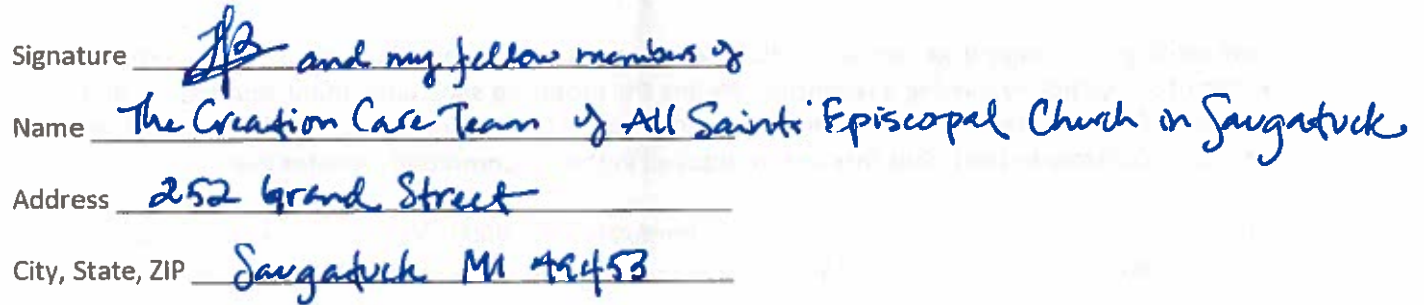 Signature and my fellow members of
Name The Creation Care Team of All Saints Episcopal Church in Saugatuck
Address 252 Grand Street
City, State, ZIP Saugatuck MI 49453